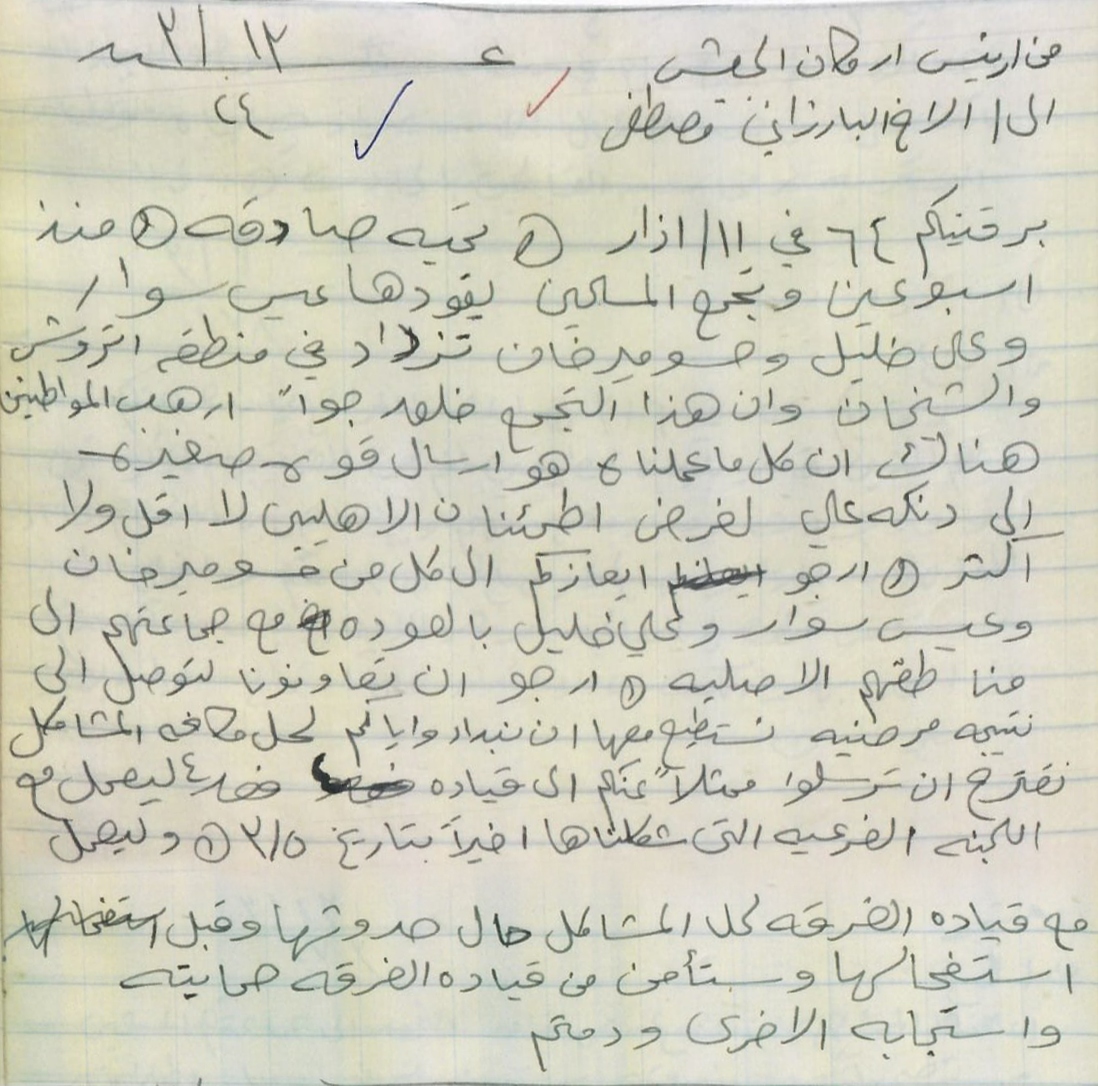 ع ١٢ /٣
٢٤
من / رئيس اركان الجيش
الى / الاخ البارزاني مصطفى
برقتيكم ٦٤ في ١١/ اذار (٠) تحيه صادقه (٠) منذ
اسبوعين وتجمع المسلحين يقودها عيسى سوار
وعلي خليل وحسو ميرخان تزداد في منطقه اتروش
والشيخان وان هذا التجمع خلق جواً ارهب المواطنين
هناك ان كل ما عملناه هو ارسال قوه صغيره
الى دنكه علي لغرض اطمئنان الاهلين لا اقل ولا
اكثر (٠) ارجو ايعازكم الى كل من حسو ميرخان
وعيسى سوار وعلي خليل بالعوده مع جماعتهم الى
مناطقهم الاصليه (٠) ارجو ان تعاونونا لنوصل الى
نتيجه مرضيه نستطيع معها ان نبدا واياكم لحل كافه المشاكل
نقترح ان ترسلوا ممثلاً عنكم الى قياده ليعمل مع
اللجنه الفرعيه التي شكلناها اخيراً بتاريخ ٣/٥ (٠) وليعمل
مع قياده الفرقه لحل المشاكل حال حدوثها وقبل
استفحالها وستأمن من قياده الفرقه حمايته
واستجابه الاخرى ودمتم